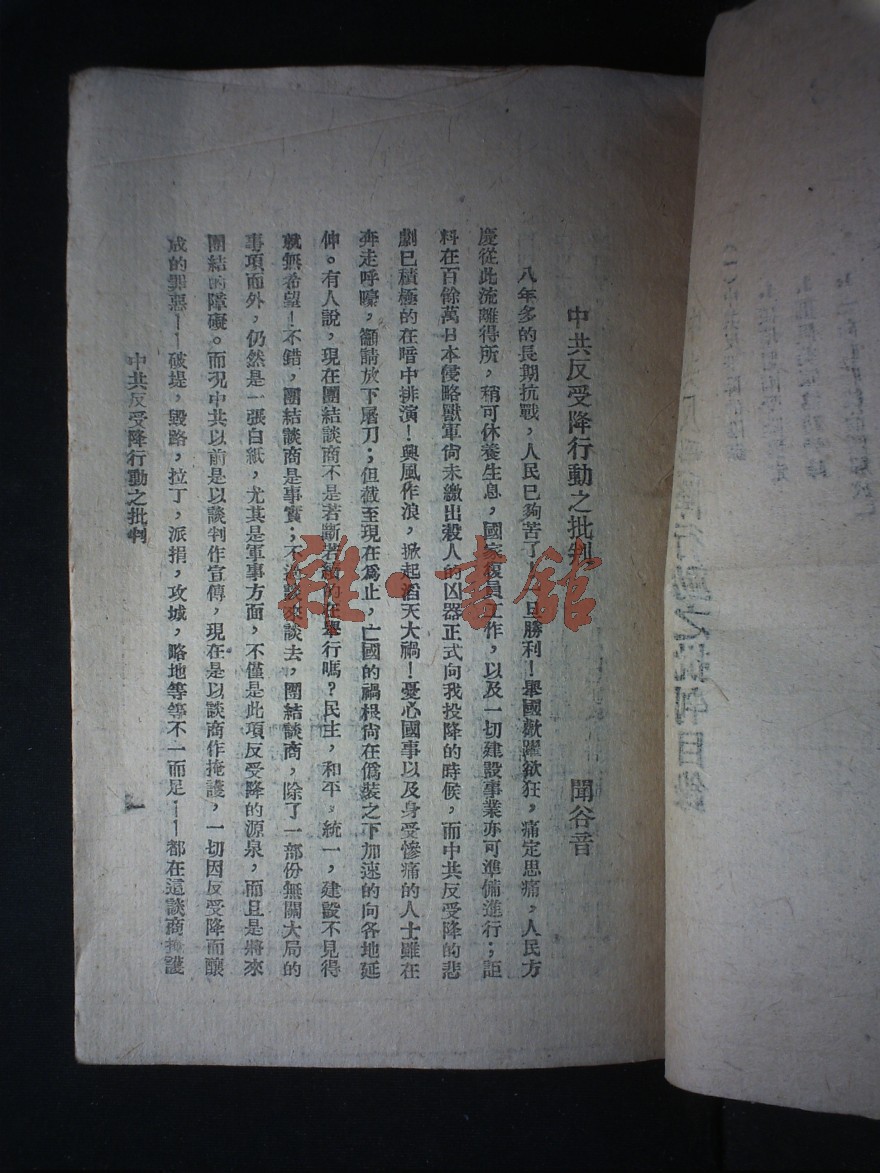 中共反受降行動之批判
聞谷音
八年多的長期抗戰，人民已夠苦了！一旦勝利！舉國歡躍欲狂，痛定思痛，人民方
慶從此流離得所，稍可休養生息，國家復員工作，以及一切建設事業亦可準備進行；詎
料在百餘萬日本侵略獸軍尚未繳出殺人的凶器正式向我投降的時候，而中共反受降的悲
劇已積極的在暗中排演！興風作浪，掀起滔天大禍！憂心國事以及身受慘痛的人士雖在
奔走呼嚎，籲請放下屠刀；但截至現在為止，亡國的禍根尚在偽裝之下加速的向各地延
伸。有人說，現在團結談商不是若斷若續的在舉行嗎？民主，和平，統一，建設不見得
就無希望！不錯，團結談商是事實；不過談來談去，團結談商，除了一部份無關大局的
事項而外，仍然是一張白紙，尤其是軍事方面，不僅是此項反受降的源泉，而且是將來
團結的障礙。而況中共以前是以談判作宣傳，現在是以談商作掩護，一切因反受降而釀
成的罪惡——破堤，毀路，拉丁，派捐，攻城，略地等等不一而足——都在這談商掩護
中共反受降行動之批判
一
雜·書館